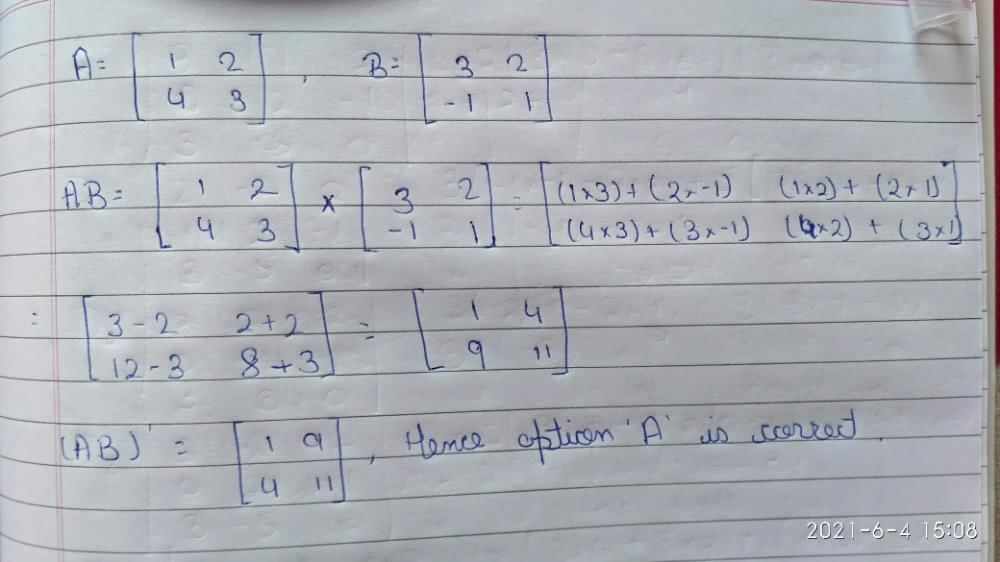 A = [ 1 2 ; 4 3 ] , B = [ 3 2 ; -1 1 ]
AB = [ 1 2 ; 4 3 ] × [ 3 2 ; -1 1 ] = [ (1×3)+(2×-1) (1×2)+(2×1) ; (4×3)+(3×-1) (4×2)+(3×1) ]
= [ 3-2 2+2 ; 12-3 8+3 ] = [ 1 4 ; 9 11 ]
(AB)' = [ 1 9 ; 4 11 ] , Hence option 'A' is correct.
2021-6-4 15:08